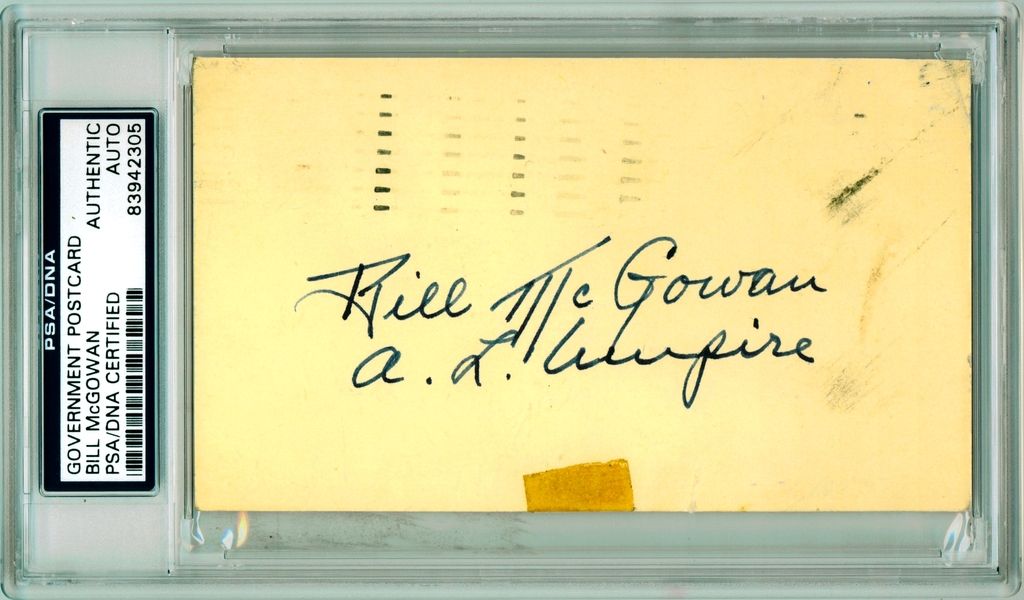 PSA/DNA
GOVERNMENT POSTCARD
BILL McGOWAN AUTHENTIC
PSA/DNA CERTIFIED AUTO
83942305
Bill McGowan
A. L. Umpire